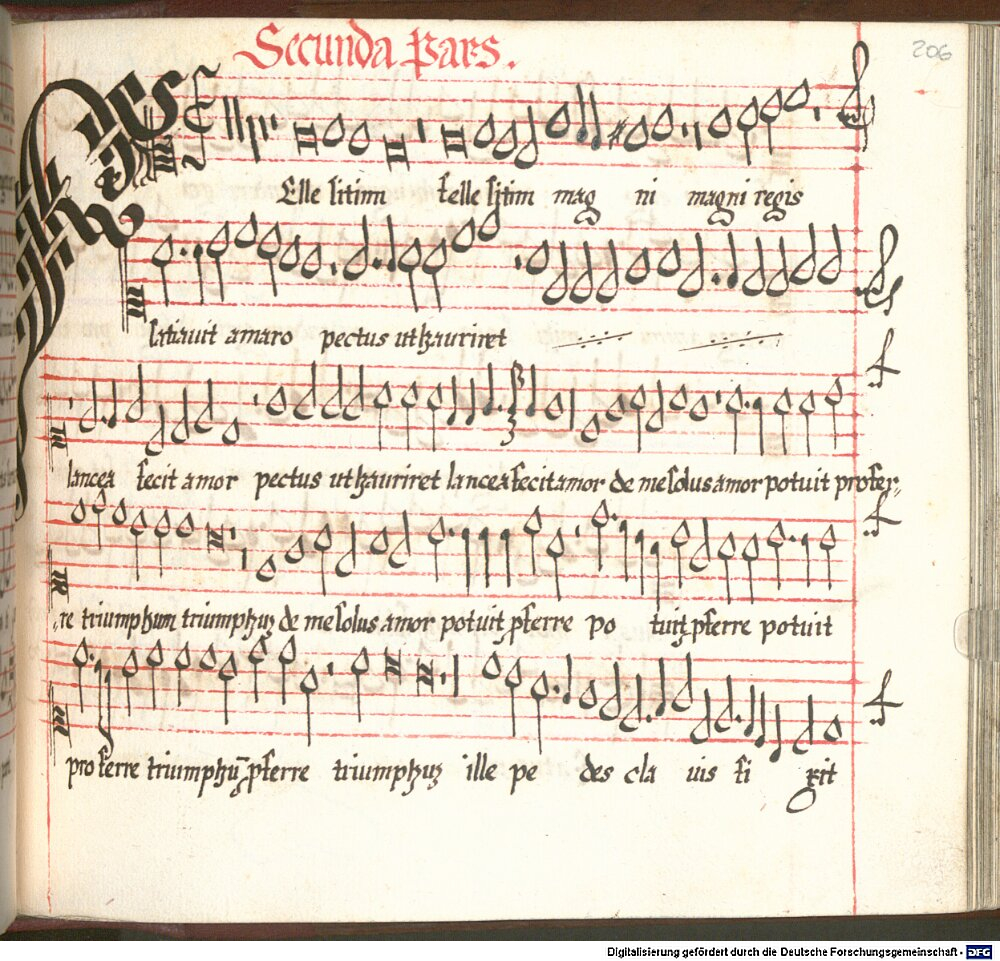 Secunda Pars.
206
Felle sitim felle sitim mag ni magni regis
satiauit amaro pectus ut hauriret
lancea fecit amor pectus ut hauriret lancea fecit amor de me solus amor potuit profer,
,re triumphum triumphuȝ de me solus amor potuit ꝓferre po tuit ꝓferre potuit
proferre triumphū ꝓferre triumphuȝ ille pe des cla uis fi xit
Digitalisierung gefördert durch die Deutsche Forschungsgemeinschaft - DFG